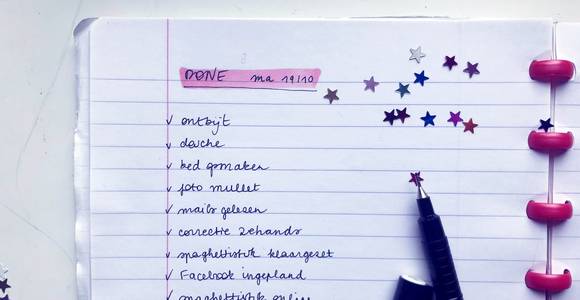 DONE ma 19/10
✓ ontbijt
✓ douche
✓ bed opmaken
✓ foto mullet
✓ mails gelezen
✓ correctie 2ehands
✓ spaghettistik klaargezet
✓ Facebook ingepland
✓ spaghettistik online